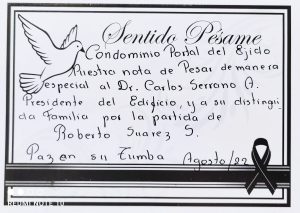 Sentido Pésame
Condominio Portal del Ejido
Nuestra nota de Pesar de manera
especial al Dr. Carlos Serrano A.
Presidente del Edificio, y a su distingui
da Familia por la partida de
Roberto Suarez S.
Paz en su Tumba Agosto/22
REDMI NOTE 10